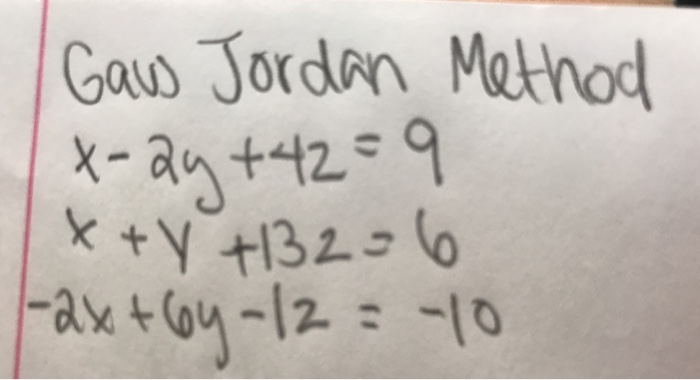 Gaus Jordan Method
x - 2y + 4z = 9
x + y + 13z = 6
-2x + 6y - 1z = -10